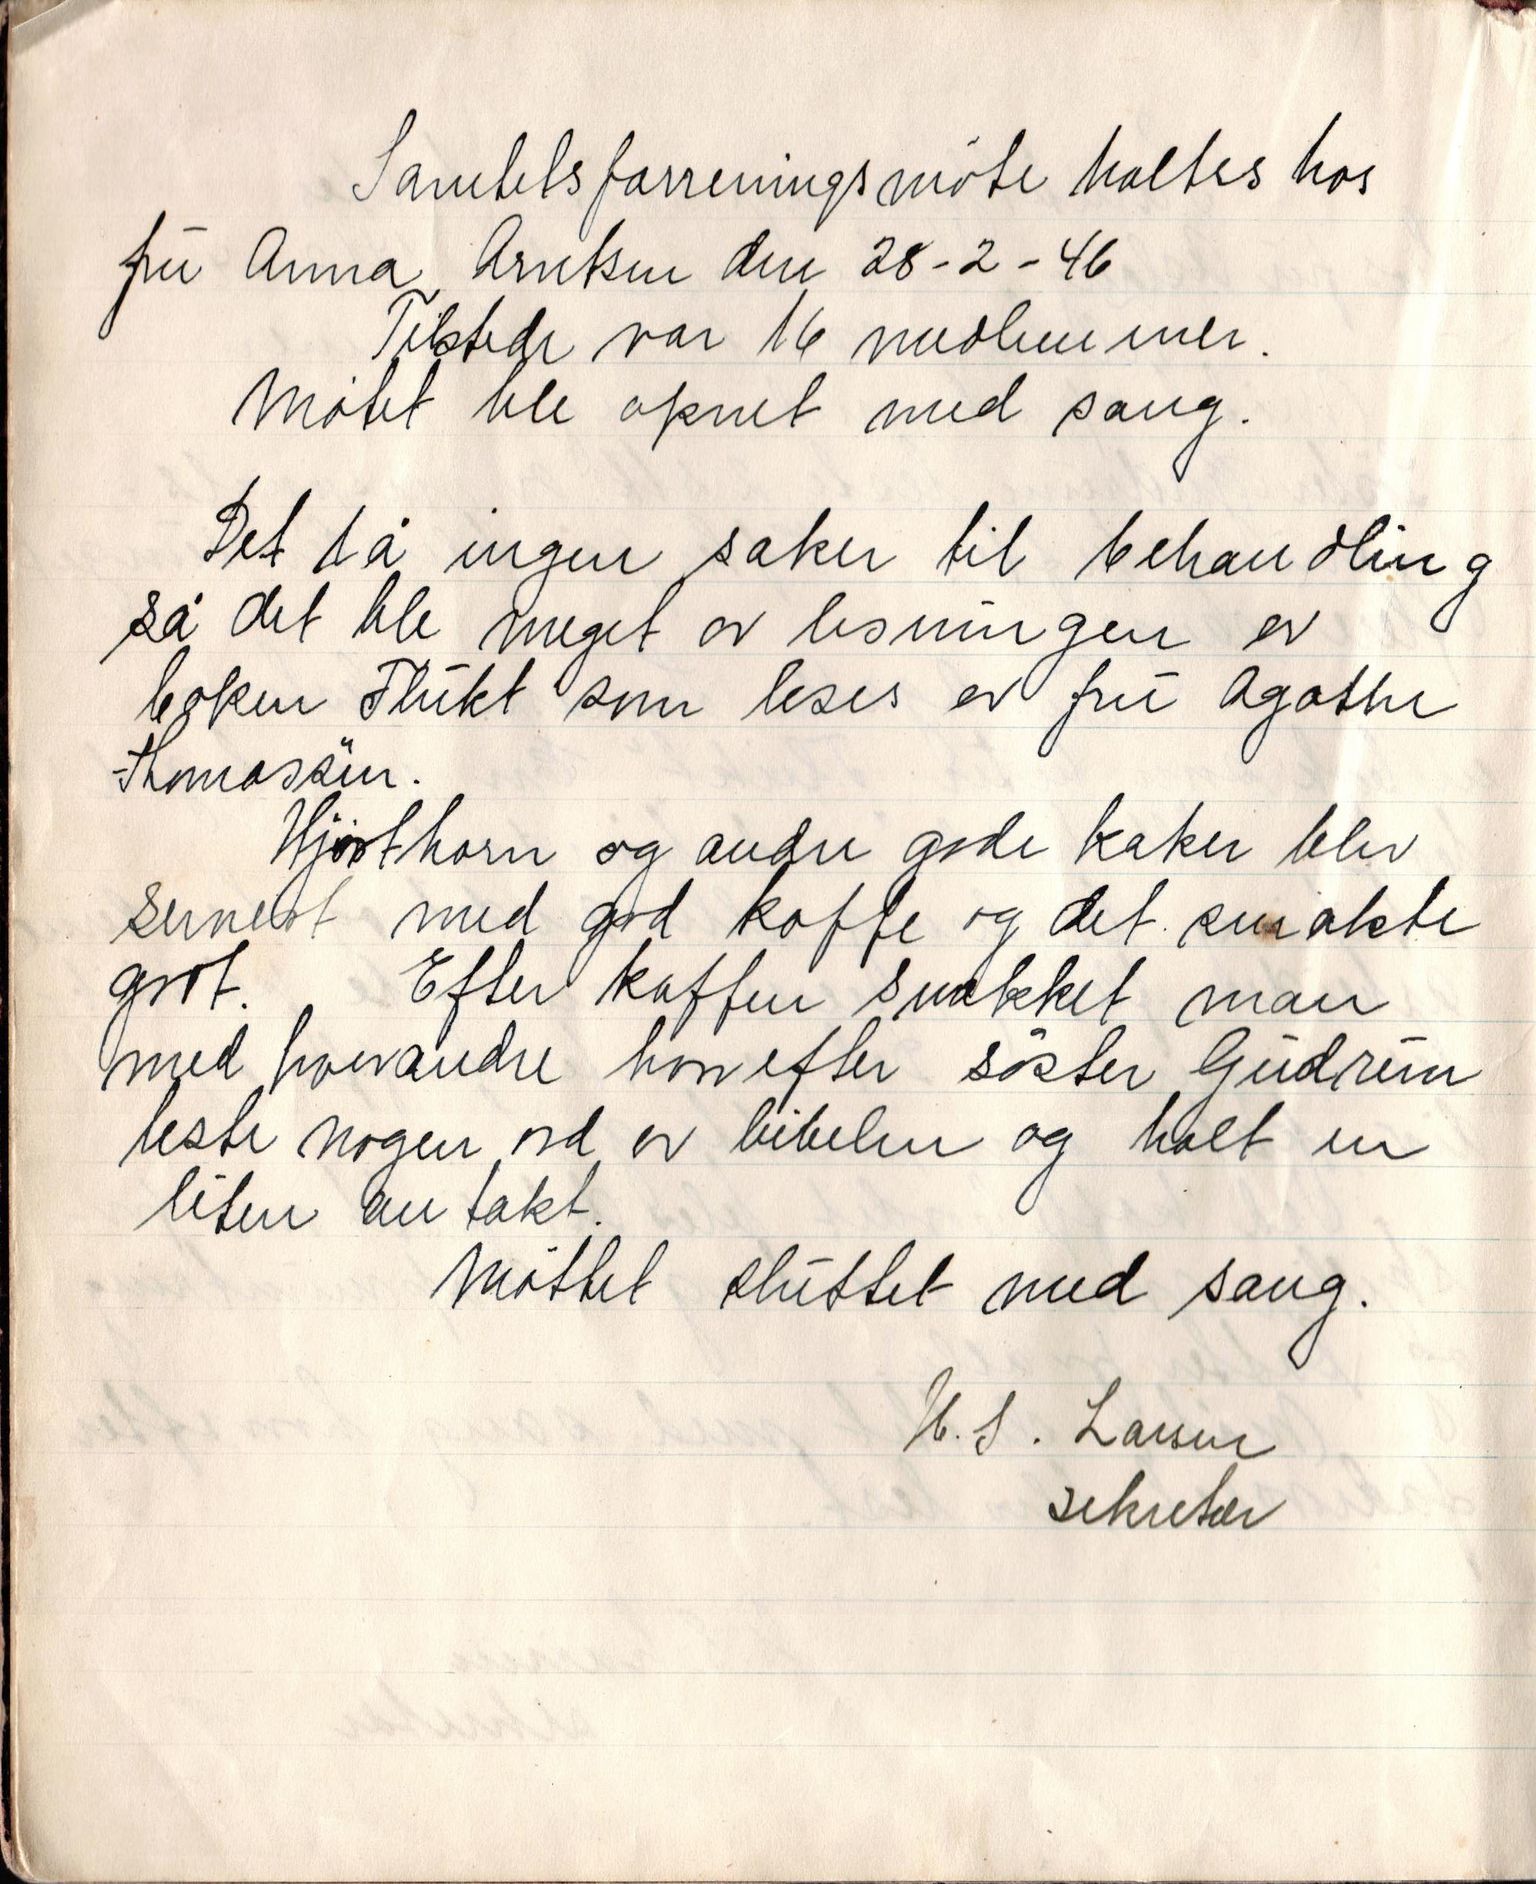 Samtelsforreningsmöte holtes hos
frü Anna Arntsen den 28-2-46
Tilstede var 16 medlemmer.
Møtet ble opnet med sang.
Det lå ingen saker til behandling
så det ble meget av lesningen av
boken Flükt som leses av frü Agathe
Thomassen.
Hjorthorn og andre gode kaker blev
servert med god kaffe og det smakte
godt. Efter kaffen snakket man
med hverandre hvorefter söster Güdrün
leste nogen ord av bibelen og holt en
liten antakt.
Möttet slüttet med sang.
H. S. Larsen
sekretær